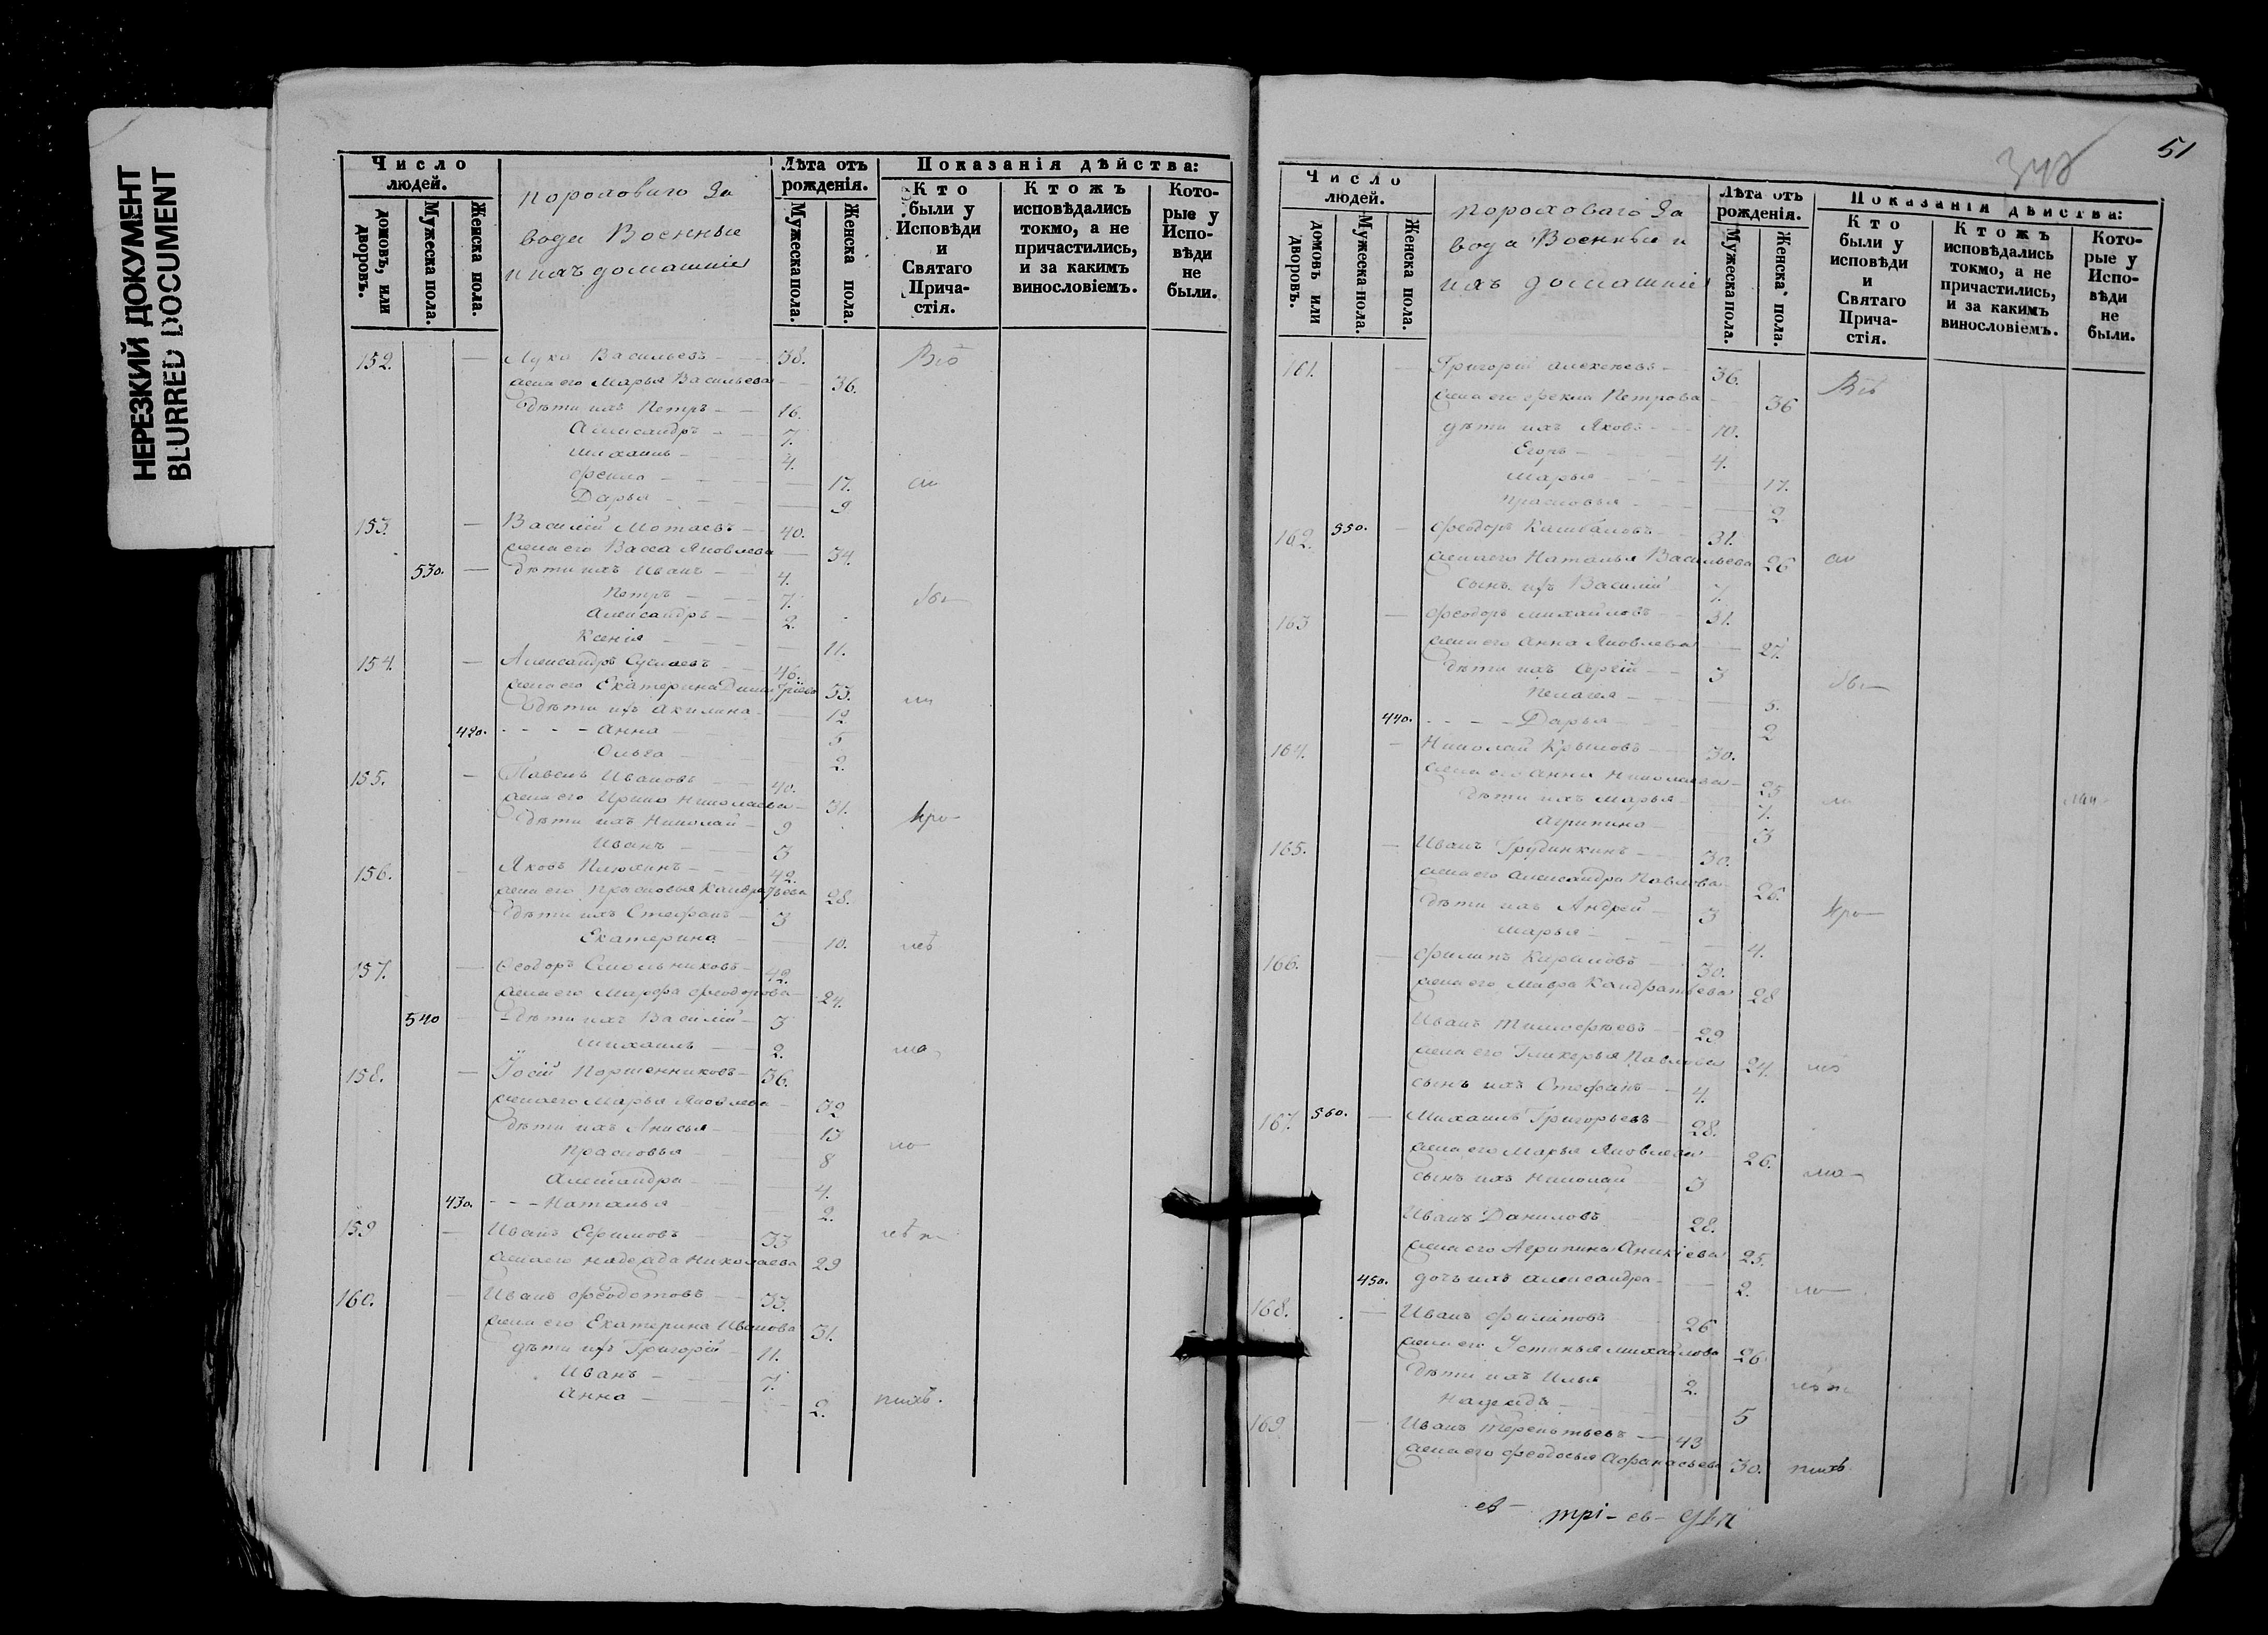 НЕРЕЗКИЙ ДОКУМЕНТ
BLURRED DOCUMENT
Число людей.
домовъ, или дворовъ.
Мужеска пола.
Женска пола.
пороховаго За
вода Военные
и ихъ домашніе
Лѣта отъ рожденія.
Мужеска пола.
Женска пола.
Показанія дѣйства:
Кто были у Исповѣди и Святаго Прича-стія.
Ктожъ исповѣдались токмо, а не причастились, и за какимъ винословіемъ.
Кото-рые у Испо-вѣди не были.
152. — Лука Васильевъ 38.
жена его Марья Васильева 36.
Дѣти ихъ Петръ 16.
Александръ 7.
Михаилъ 4.
Фекла 17.
Дарья 9
153. — Василій Мотаевъ 40.
жена его Васса Яковлева 34.
530. — Дѣти ихъ Иванъ 4.
Петръ 7.
Александръ 2.
Ксенія 11.
154. — Александръ Суслаевъ 46.
жена его Екатерина Димитріева 33.
Дѣти ихъ Акилина 12.
420. Анна 5
Ольга 2.
155. — Павелъ Ивановъ 40.
жена его Ирина Николаева 31.
Дѣти ихъ Николай 9
Иванъ 3
156. — Яковъ 42.
жена его Прасковья Кандратьева 28.
Дѣти ихъ Стефанъ 3
Екатерина 10.
157. — Ѳеодоръ Смольниковъ 42.
жена его Марфа Феодорова 24.
540 — Дѣти ихъ Василій 3
Михаилъ 2.
158. — Іосій Поршенниковъ 36.
жена его Марья Яковлева 32
Дѣти ихъ Анисья 13
Прасковья 8
Александра 4.
430. Наталья 2.
159 — Иванъ Ефимовъ 33
жена его Надежда Николаева 29
160. — Иванъ Феодотовъ 33.
жена его Екатерина Иванова 31.
дѣти ихъ Григорій 11.
Иванъ 7.
Анна 2.
51
348
Число людей.
домовъ или дворовъ.
Мужеска пола.
Женска пола.
пороховаго За
вода Военные и
ихъ домашніе
Лѣта отъ рожденія.
Мужеска пола.
Женска пола.
Показанія дѣйства:
Кто были у исповѣди и Святаго Прича-стія.
Ктожъ исповѣдались токмо, а не причастились, и за какимъ винословіемъ.
Кото-рые у Испо-вѣди не были.
161. — Григорій Алексѣевъ 36.
жена его Фекла Петрова 36
дѣти ихъ Яковъ 10.
Егоръ 4.
Марья 17.
Прасковья 2
162. 550. — Феодоръ 31.
жена его Наталья Васильева 26
сынъ ихъ Василій 7.
163 — Феодоръ Михайловъ 31.
жена его Анна Яковлева 27.
Дѣти ихъ Сергій 3
Пелагея 5.
440. Дарья 2
164. — Николай Крыловъ 30.
жена его Анна Николаева 25
Дѣти ихъ Марья 7.
Агрипина 3
165. — Иванъ Грудинкинъ 30.
жена его Александра Павлова 26.
Дѣти ихъ Андрей 3
Марья 4.
166. — Филипъ Кариловъ 30.
жена его Мавра Кандратьева 28
Иванъ Тимофѣевъ 29
жена его Гликерья Павлова 24.
сынъ ихъ Стефанъ 4.
167. 560. — Михаилъ Григорьевъ 28.
жена его Марья Яковлева 26.
сынъ ихъ Николай 3
Иванъ Даниловъ 28.
жена его Агрипина Аникіева 25.
450. дочь ихъ Александра 2.
168. — Иванъ Филиповъ 26
жена его Устинья Михайлова 26.
Дѣти ихъ Илья 2.
Надежда 5
169 — Иванъ Терентьевъ 43
жена его Феодосья Афанасьева 30.